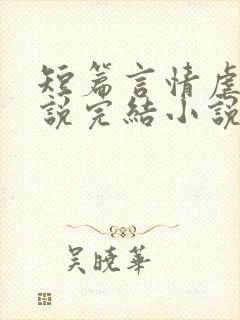 短篇言情虐
説完結小説
吴曉華